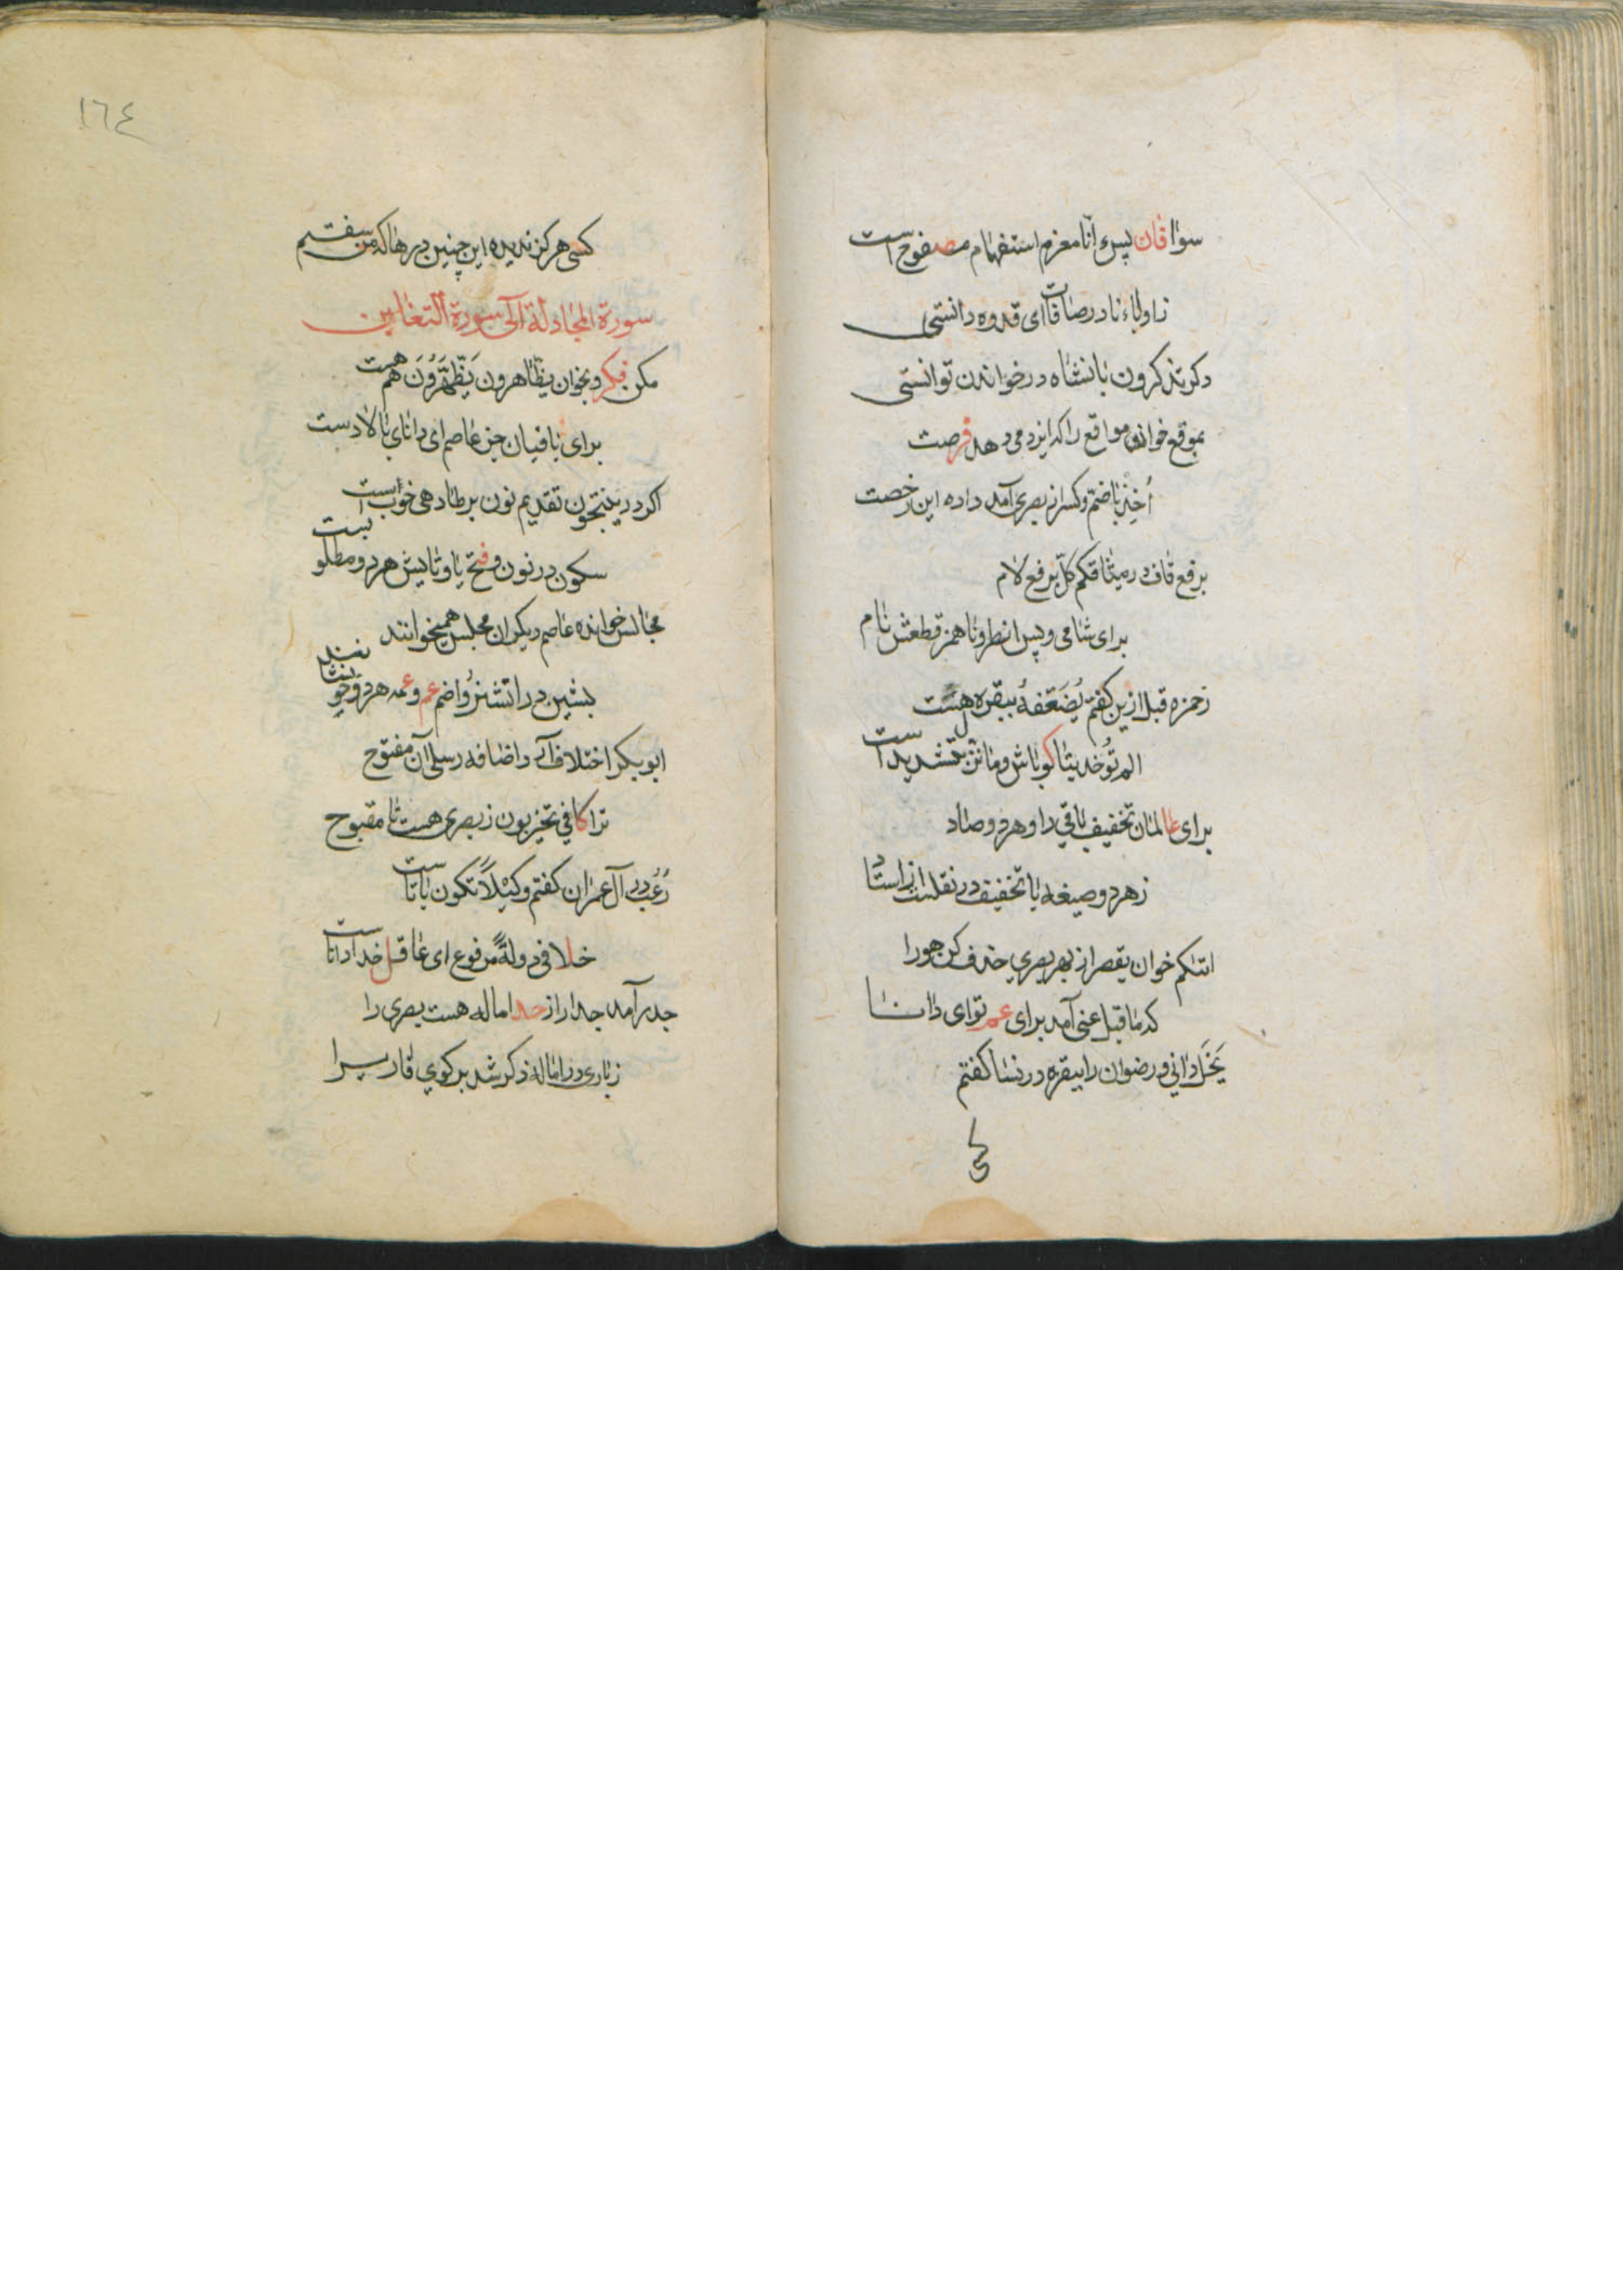 سوا فان پس ءانا مغرم استفهام مصفوح است
زاو اباءنا در صافات ای قدوه دانستی
دکر تذکرون بانشاه در خواندن توانستی
بموقع خوان مواقع را که ایزد می دهد فرصت
اُخِذ باضم و کسر از بصری آمد داده این رخصت
برفع قاف در میثاقکم کلّ برفع لام
برای شامی و پس انظرونا همز قطعش نام
زحمزه قبل ازین کفتم یُضَعّفهُ ببقره هست
الم توخذ بتا کو باش و ما نزّل بتشدید است
برای عالمان تخفیف باقی را و هر دو صاد
زهر دو صیغه با تخفیف در نقلست از استاد
اتیکم خوان بقصر از بهر بصری حذف کن هو را
که ما قبل غنی آمد برای عم توای دانا
بَخَل دانی و رضوان را ببقره در نسا کفتم
کسی
کسی هرکز ندیده این چنین درها که من سفتم
سورة المجادلة الی سورة التغابن
مکن فکر و بخوان یظاهرون یَظَّهَّرُونَ هم هست
برای باقیان جز عاصم ای دانای بالادست
اکر در ینتجون تقدیم نون بر طا دهی خوب است
سکون در نون و فتح یا و تایش هر دو مطلوبست
مجالس خوانده عاصم دیکران مجلس همیخوانند
بشین در انشزُوا ضم عم و عمه هر دو
ابوبکر اختلاف آمد و اضافه رسلی آن مفتوح
ترا کافی تخربون زبصری هست تا مقبوح
رُعُب در آل عمران کفتم و کیلاً تکون باتاست
خلافی دولةٌ مرفوع ای عاقل خدا داناست
جدر آمد جدار از حد اماله هست بصری را
زباری در اماله ذکر شد بر کوی قاریرا
١٦٤